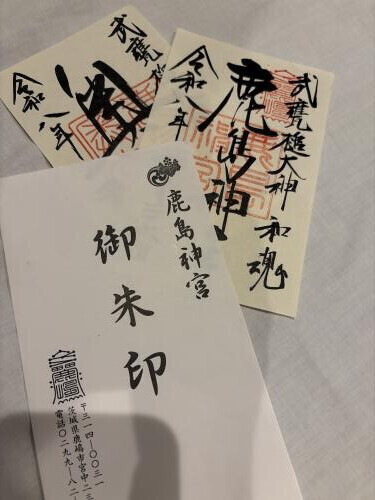 武甕槌大神 和魂
鹿島神
令和八年
武甕槌
令和八年
鹿島神宮
御朱印
〒三一四-〇〇三一
茨城県鹿嶋市宮中二三
電話〇二九九-八二-